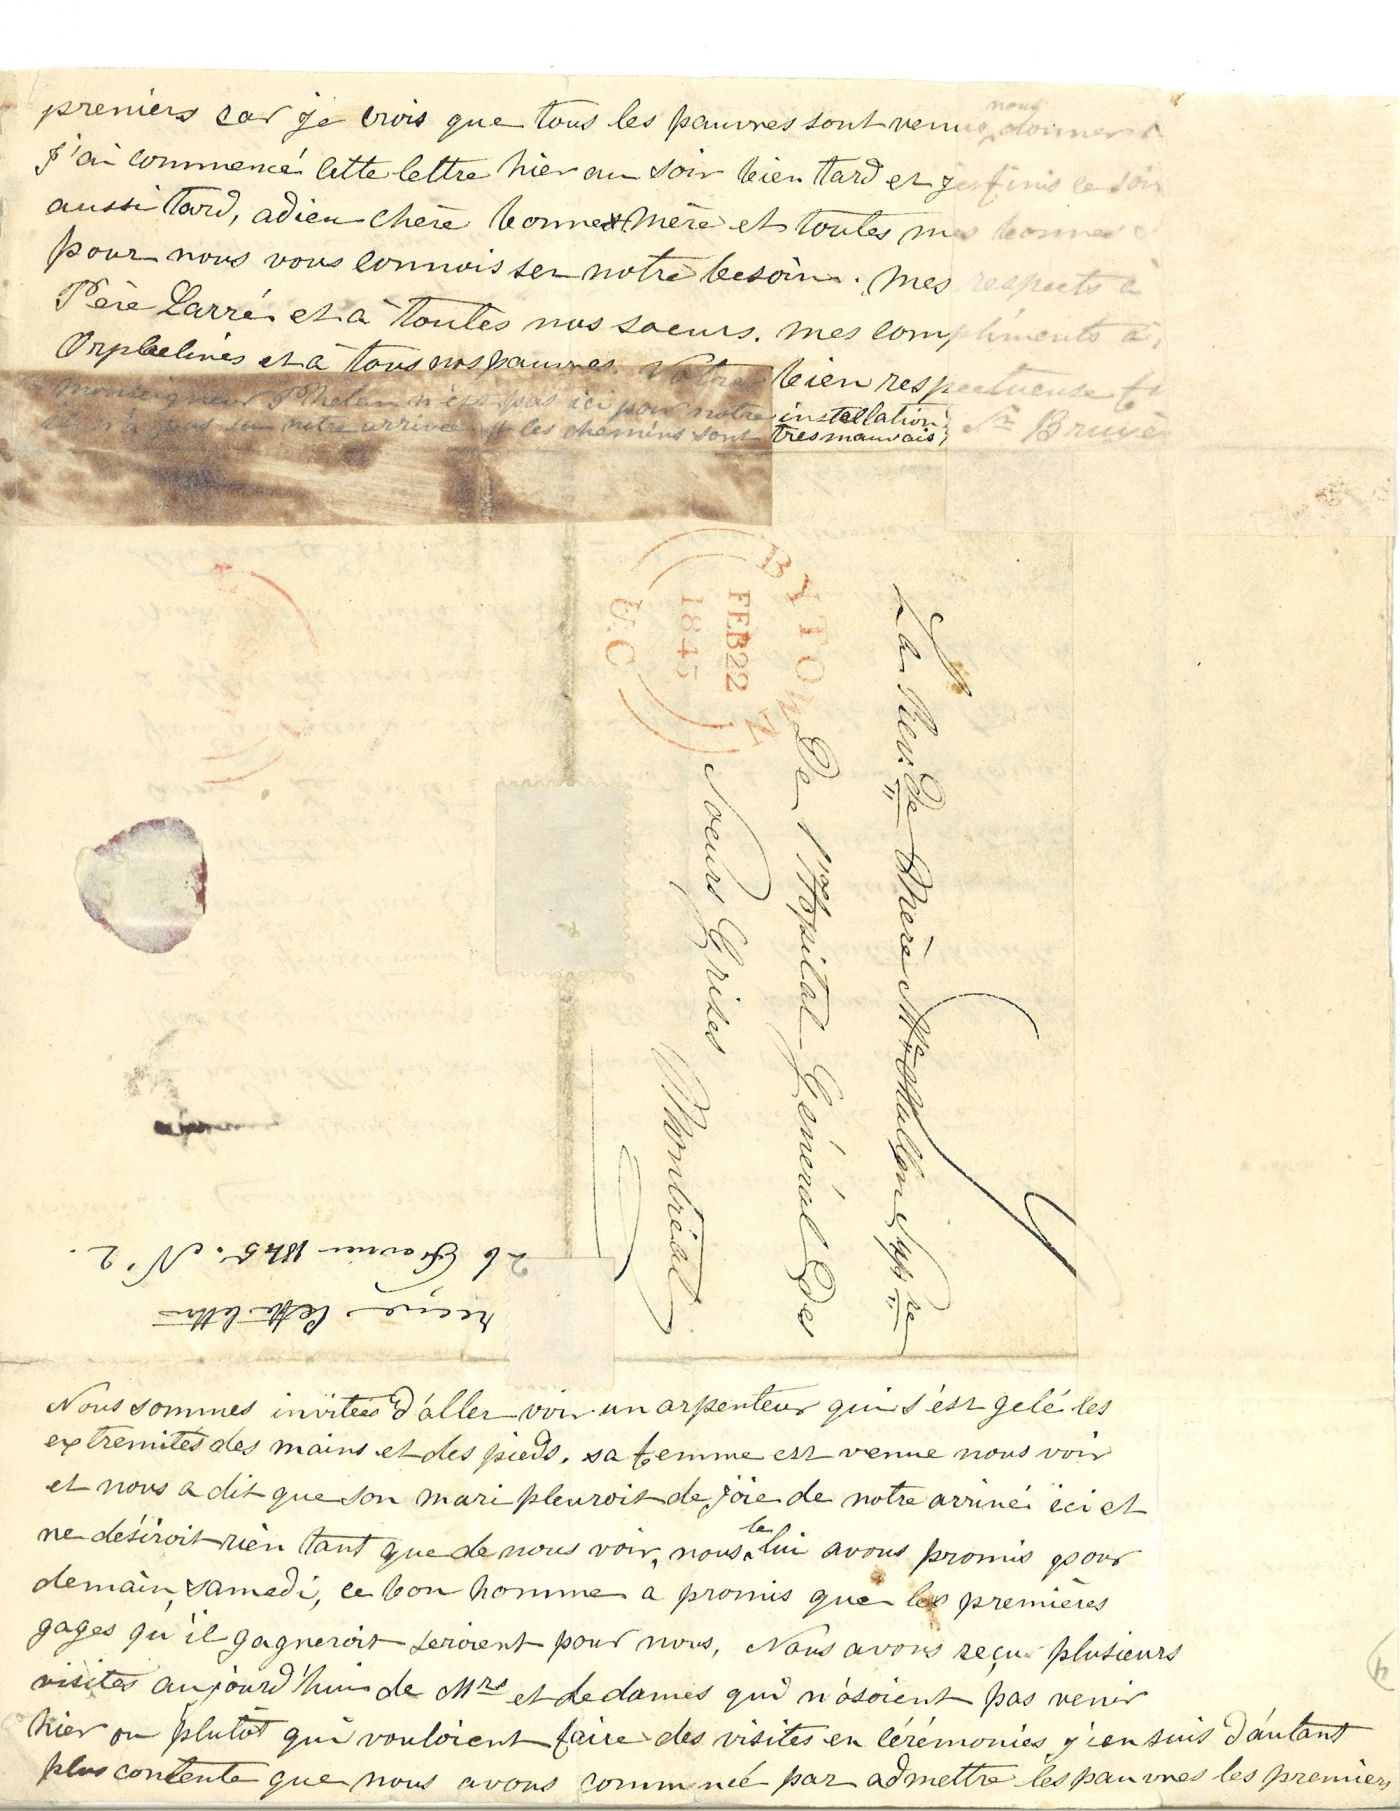 premiers car je crois que tous les pauvres sont venus nous donner
J'ai commencé cette lettre hier au soir bien tard et je finis ce soir
aussi tard, adieu chère bonne Mère et toutes mes bonnes
pour nous vous connoissez notre besoin. Mes respects à
Père Larré et à toutes nos soeurs. mes compliments à
Orphelines et à tous nos pauvres. Votre bien respectueuse
Monseigneur Phelan n'est pas ici pour notre installation
il n'a pas su notre arrivée et les chemins sont très mauvais, Sr. Bruyè
BYTOWN
FEB 22
1845
U.C
La Rév.de Mère McMullen Supre
De l'Hôpital Général des
Soeurs Grises
Montréal
reçue cette lettre
26 Février 1845. No 2.
Nous sommes invitées d'aller voir un arpenteur qui s'est gelé les
extremités des mains et des pieds. sa femme est venue nous voir
et nous a dit que son mari pleuroit de joie de notre arrivé ici et
ne désiroit rien tant que de nous voir, nous le lui avons promis pour
demain, samedi, ce bon homme a promis que les premières
gages qu'il gagneroit seroient pour nous. Nous avons reçu plusieurs
visites aujourd'hui de Mrs et de dames qui n'osoient pas venir
hier ou plutôt qui vouloient faire des visites en cérémonies, j'en suis d'autant
plus contente que nous avons commncé par admettre les pauvres les premiers